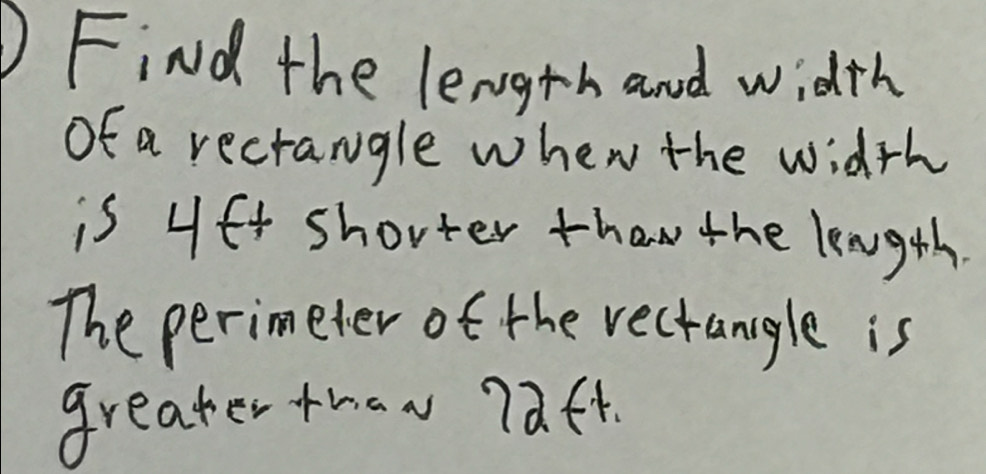 ) Find the length and width
of a rectangle when the width
is 4ft shorter than the length.
The perimeter of the rectangle is
greater than 72ft.